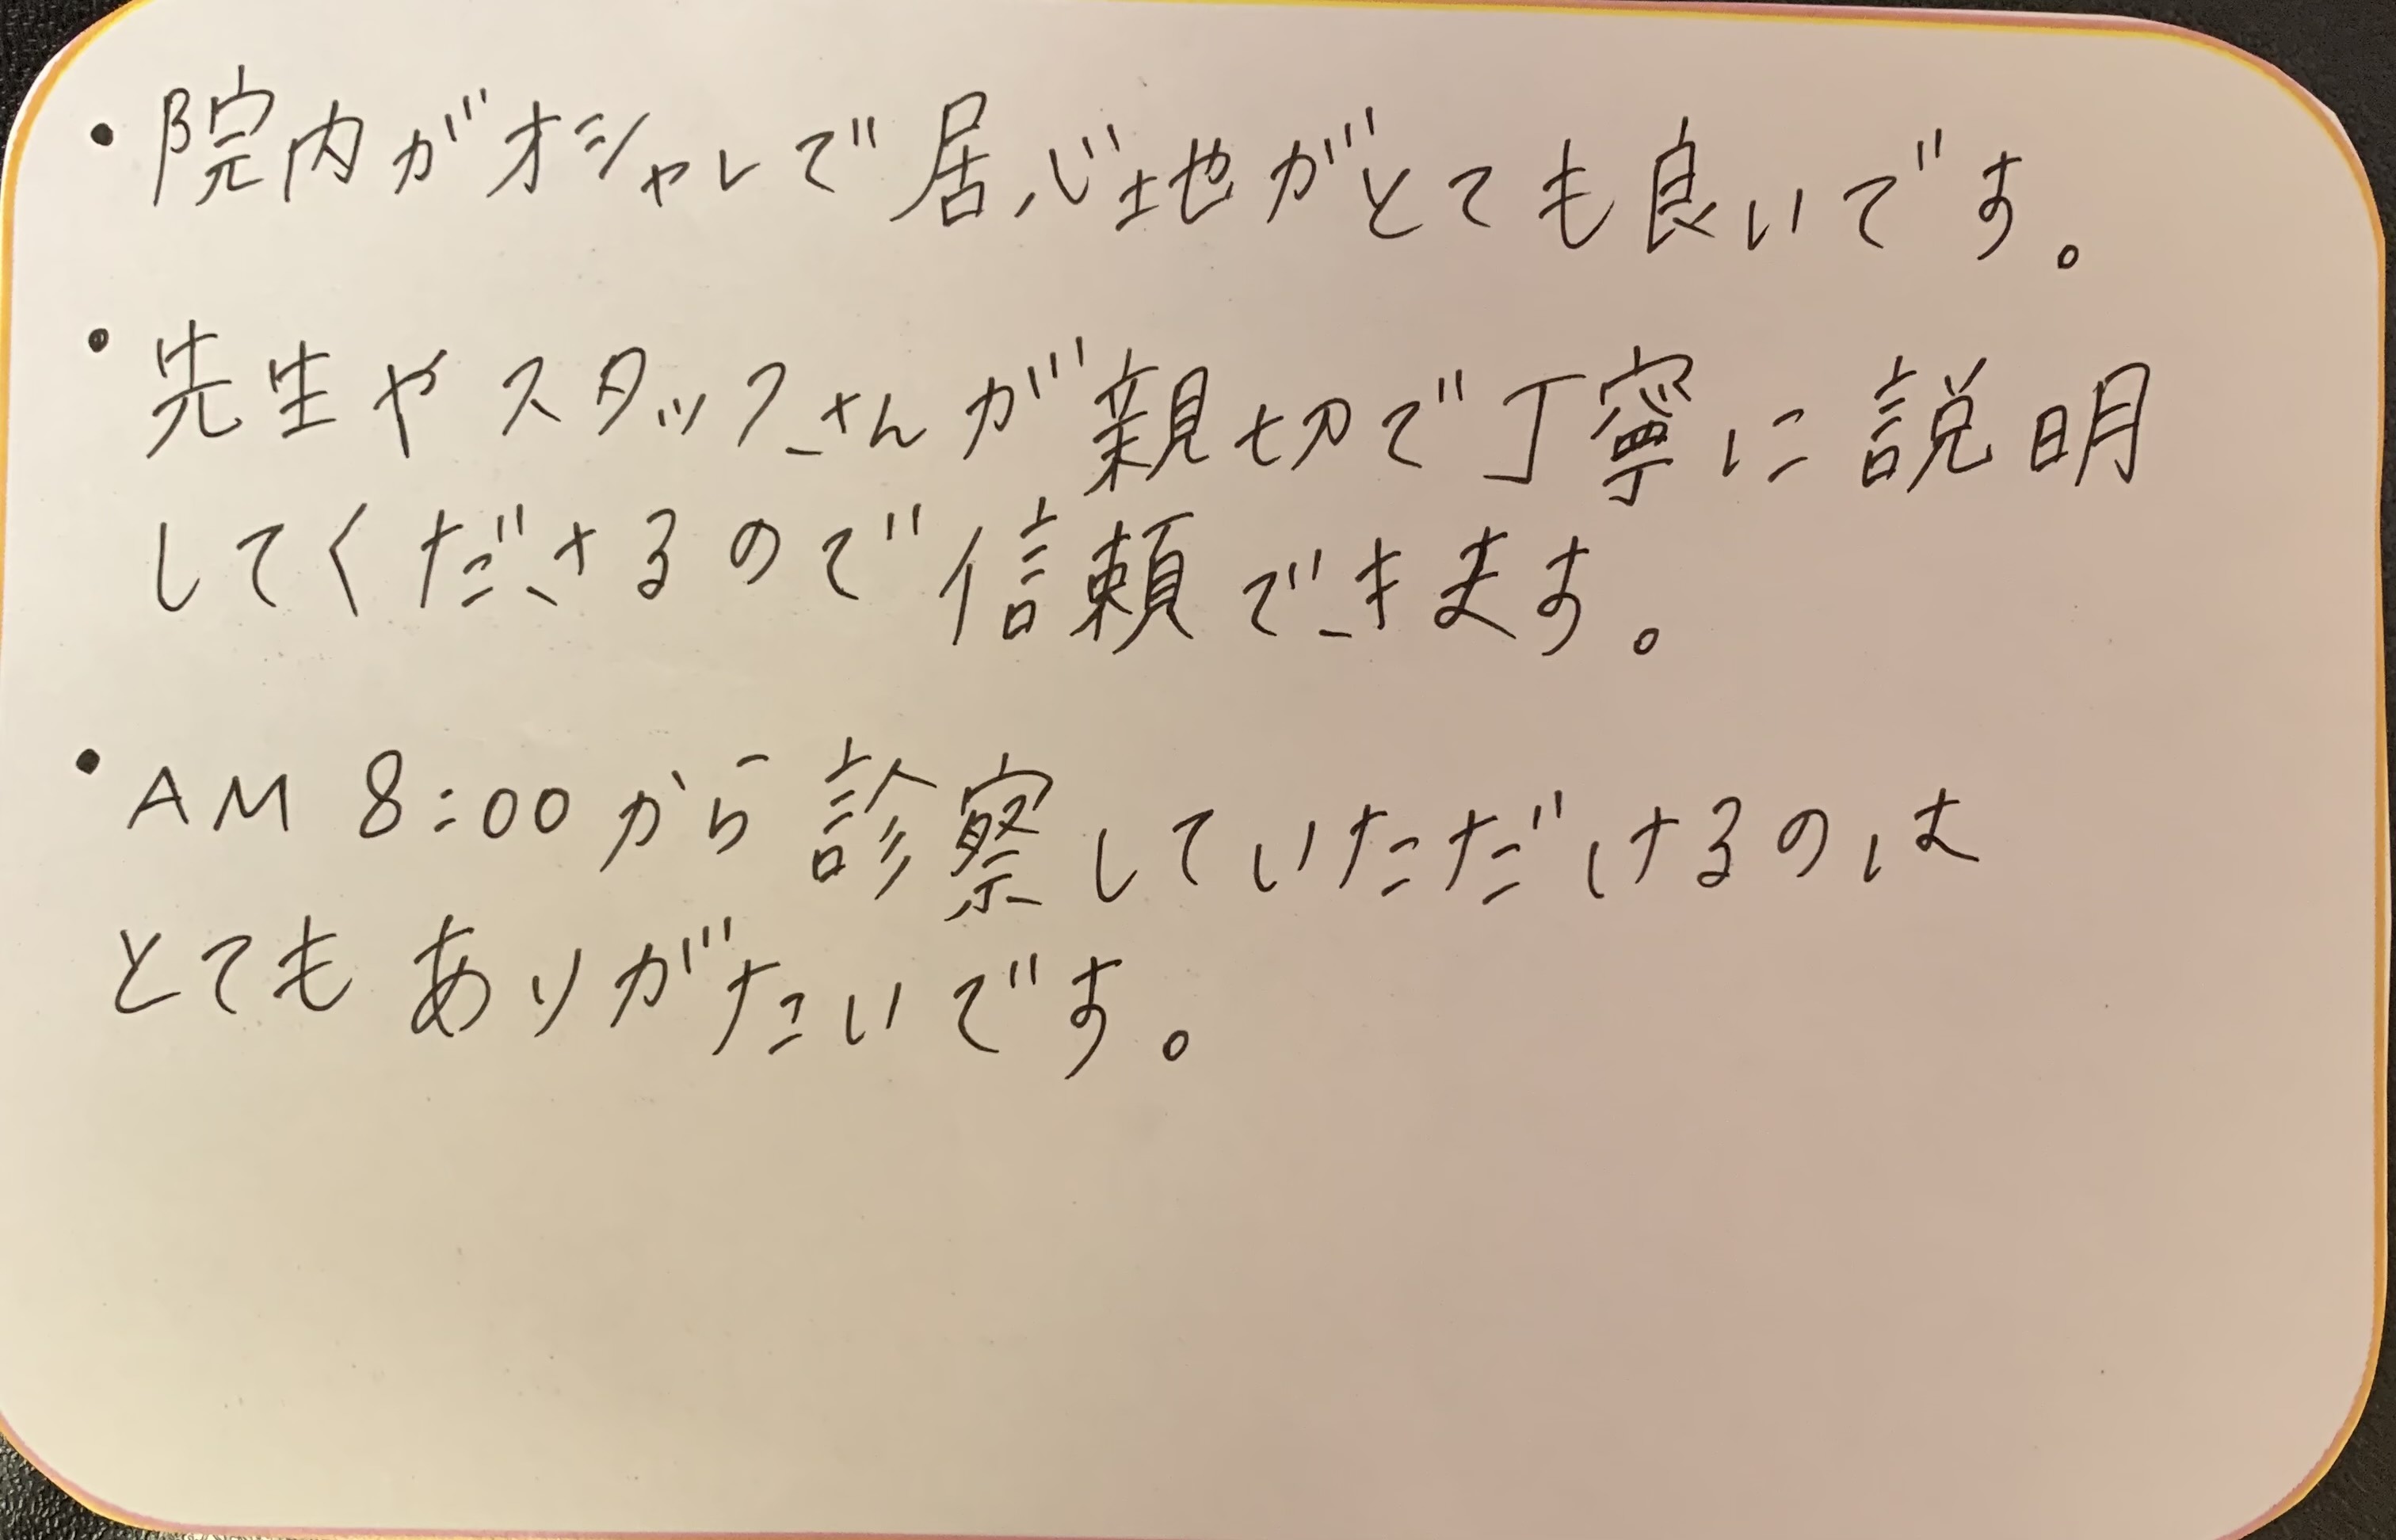 ・院内がオシャレで居心地がとても良いです。
・先生やスタッフさんが親切で丁寧に説明
してくださるので信頼できます。
・AM 8:00から診察していただけるのは
とてもありがたいです。